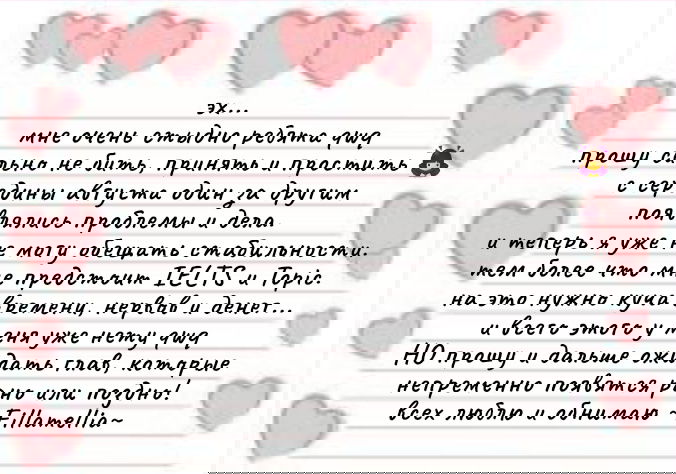 эх...
мне очень стыдно ребята qwq
прошу сильна не бить, принять и простить
с середины августа один за другим
появлялись проблемы и дела.
и теперь я уже не могу обещать стабильности.
тем более что мне предстоит IELTS и Topic.
на это нужно куча времени, нервов и денег...
и всего этого у меня уже нету qwq
НО прошу и дальше ожидать глав, которые
непременно появятся рано или поздно!
всех люблю и обнимаю ~F.llamellia~